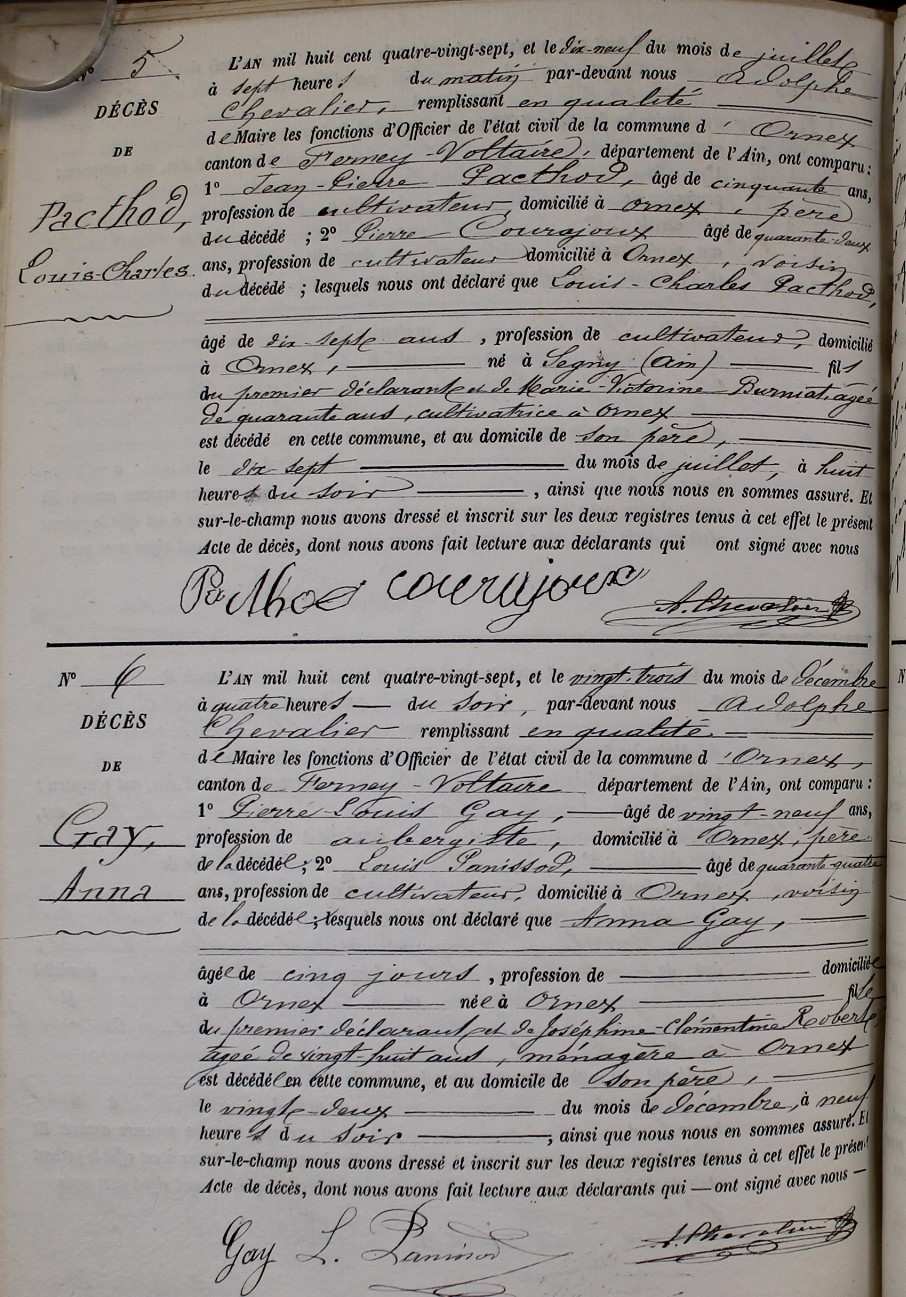 N° 5
DÉCÈS
DE
Pacthod,
Louis-Charles.
L'AN mil huit cent quatre-vingt-sept, et le dix-neuf du mois de juillet
à sept heures du matin par-devant nous Adolphe
Chevalier, remplissant en qualité
de Maire les fonctions d'Officier de l'état civil de la commune d'Ornex
canton de Ferney-Voltaire, département de l'Ain, ont comparu :
1° Jean-Pierre Pacthod, âgé de cinquante ans,
profession de cultivateur, domicilié à Ornex, père
du décédé ; 2° Pierre Courajoux âgé de quarante-deux
ans, profession de cultivateur domicilié à Ornex, voisin
du décédé ; lesquels nous ont déclaré que Louis-Charles Pacthod,
âgé de dix-sept ans, profession de cultivateur, domicilié
à Ornex, né à Segny (Ain) fils
du premier déclarant et de Marie-Victorine Burniat, agée
de quarante ans, cultivatrice à Ornex
est décédé en cette commune, et au domicile de son père,
le dix-sept du mois de juillet, à huit
heures du soir, ainsi que nous nous en sommes assuré. Et
sur-le-champ nous avons dressé et inscrit sur les deux registres tenus à cet effet le présent
Acte de décès, dont nous avons fait lecture aux déclarants qui ont signé avec nous
Pacthod courajoux A. Chevalier
N° 6
DÉCÈS
DE
Gay,
Anna
L'AN mil huit cent quatre-vingt-sept, et le vingt-trois du mois de décembre
à quatre heures du soir, par-devant nous Adolphe
Chevalier remplissant en qualité
de Maire les fonctions d'Officier de l'état civil de la commune d'Ornex,
canton de Ferney-Voltaire département de l'Ain, ont comparu :
1° Pierre-Louis Gay, âgé de vingt-neuf ans,
profession de aubergiste, domicilié à Ornex, père
de la décédée ; 2° Louis Panissod, âgé de quarante-quatre
ans, profession de cultivateur, domicilié à Ornex, voisin
de la décédée ; lesquels nous ont déclaré que Anna Gay,
âgée de cinq jours, profession de domiciliée
à Ornex née à Ornex fille
du premier déclarant et de Joséphine-Clémentine Robert,
agée de vingt-huit ans, ménagère à Ornex
est décédée en cette commune, et au domicile de son père,
le vingt-deux du mois de décembre, à neuf
heures du soir, ainsi que nous nous en sommes assuré. Et
sur-le-champ nous avons dressé et inscrit sur les deux registres tenus à cet effet le présent
Acte de décès, dont nous avons fait lecture aux déclarants qui ont signé avec nous
Gay L. Panissod A. Chevalier